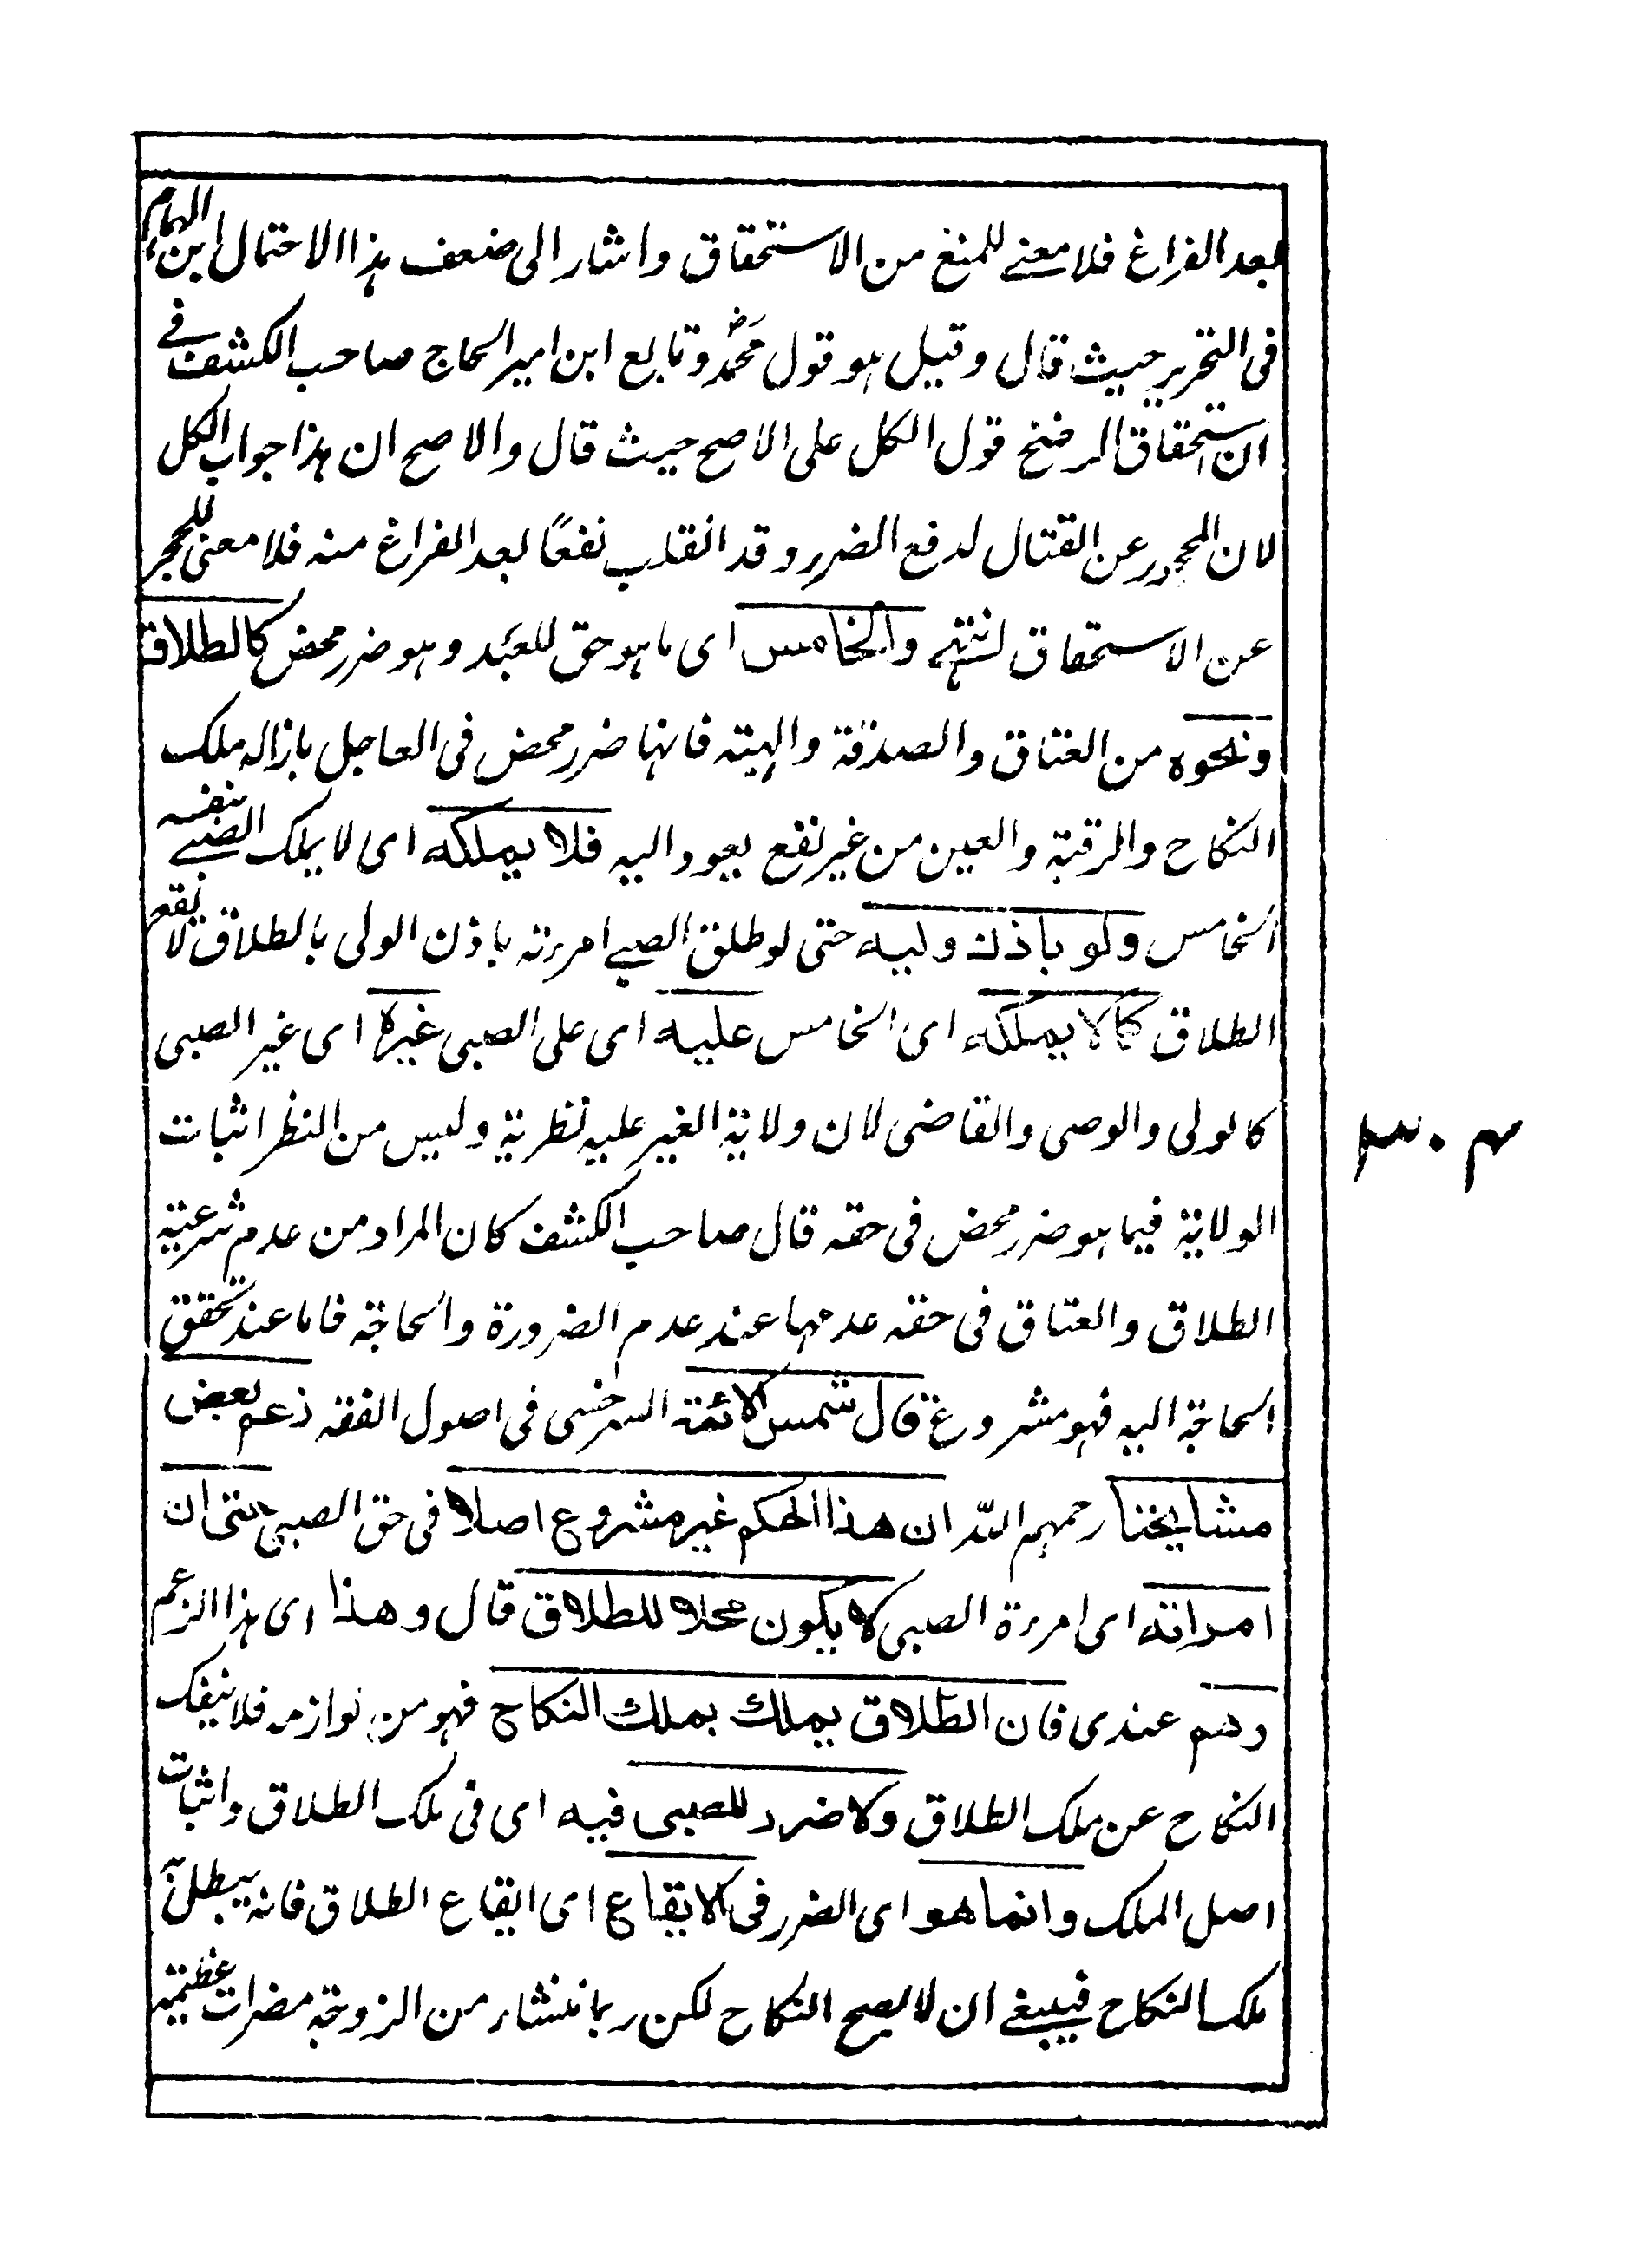 بعد الفراغ فلا معنے للمنع من الاستحقاق واشار الی ضعف ہذا الاحتمال ابن الہمام
فی التحریر حیث قال وقیل ہو قول محمدؒ وتابع ابن امیر الحاج صاحب الکشف فے
ان استحقاق الرضخ قول الکل علی الاصح حیث قال والاصح ان ہذا جواب الکل
لان المحجور عن القتال لدفع الضرر وقد انقلب نفعًا بعد الفراغ منہ فلا معنی للحجر
عن الاستحقاق انتہے والخامس ای ما ہو حق للعبد وہو ضرر محض کالطلاق
ونحوہ من العتاق والصدقۃ والہبتہ فانہا ضرر محض فی العاجل بازالہ ملک
النکاح والرقبۃ والعین من غیر نفع یعود الیہ فلا یملکه ای لا یملک الصبے بنفسہ
الخامس ولو باذن ولیه حتی لو طلق الصبے امرءتہ باذن الولی بالطلاق لا یقع
الطلاق کما لا یملکه ای الخامس علیه ای علی الصبی غیرہ ای غیر الصبی
کالولی والوصی والقاضی لان ولایۃ الغیر علیہ نظریۃ ولیس من النظر اثبات
الولایۃ فیما ہو ضرر محض فی حقہ قال صاحب الکشف کان المراد من عدم شرعیۃ
الطلاق والعتاق فی حقہ عدمہا عند عدم الضرورۃ والحاجۃ فاما عند تحقق
الحاجۃ الیہ فہو مشروع قال شمس الائمة السرخسی فی اصول الفقہ زعم بعض
مشایخنا رحمہم اللہ ان هذا الحکم غیر مشروع اصلا فی حق الصبی حتی ان
امراته ای امرءۃ الصبی لا یکون محلا للطلاق قال وهذا ای ہذا الزعم
وهم عندی فان الطلاق یملك بملك النکاح فہو من لوازمہ فلا ینفک
النکاح عن ملک الطلاق ولا ضرر للصبی فیه ای فی ملک الطلاق واثبات
اصل الملک وانما هو ای الضرر فی الایقاع ای ایقاع الطلاق فانہ یبطل بہ
ملک النکاح فینبغے ان لا یصح النکاح لکن ربما ینشاء من الزوجۃ مضرات عظیمۃ
۳۰۴